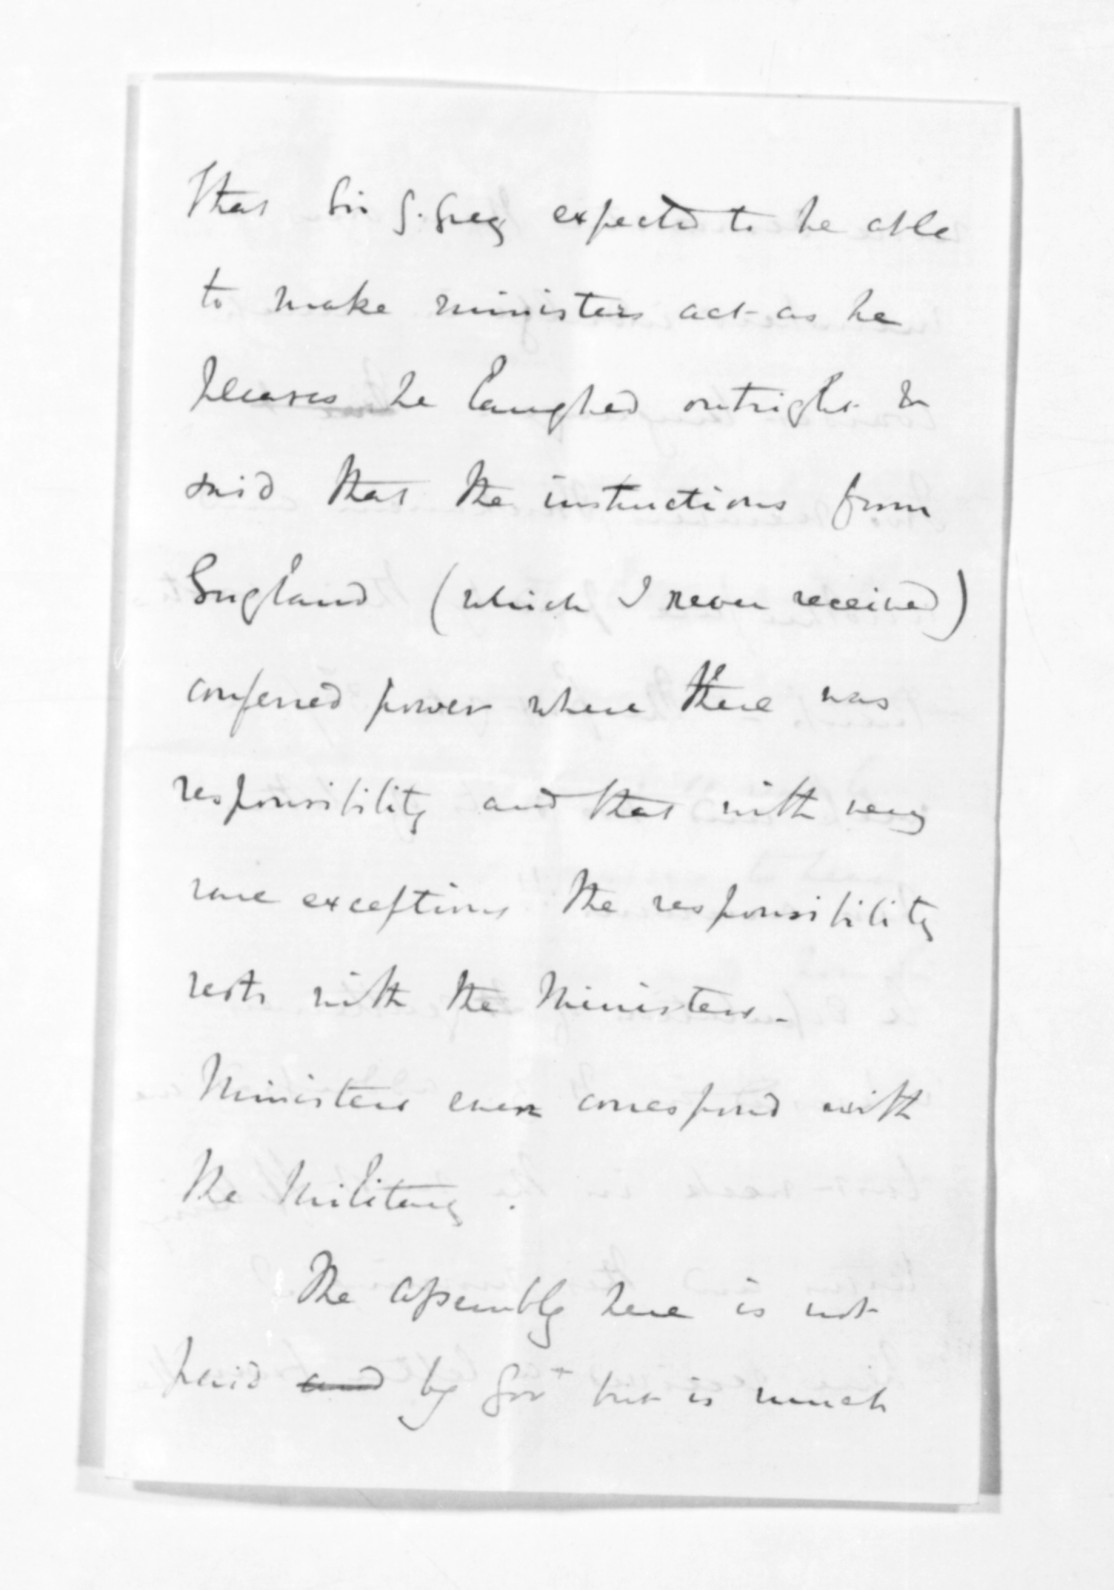 that Sir G. Grey expected to be able
to make ministers act as he
pleases he laughed outright &
said that the instructions from
England (which I never received)
conferred power where there was
responsibility and that with very
rare exceptions the responsibility
rests with the Ministers -
Ministers even correspond with
the Military.
The Assembly here is not
paid and by Govt but is much